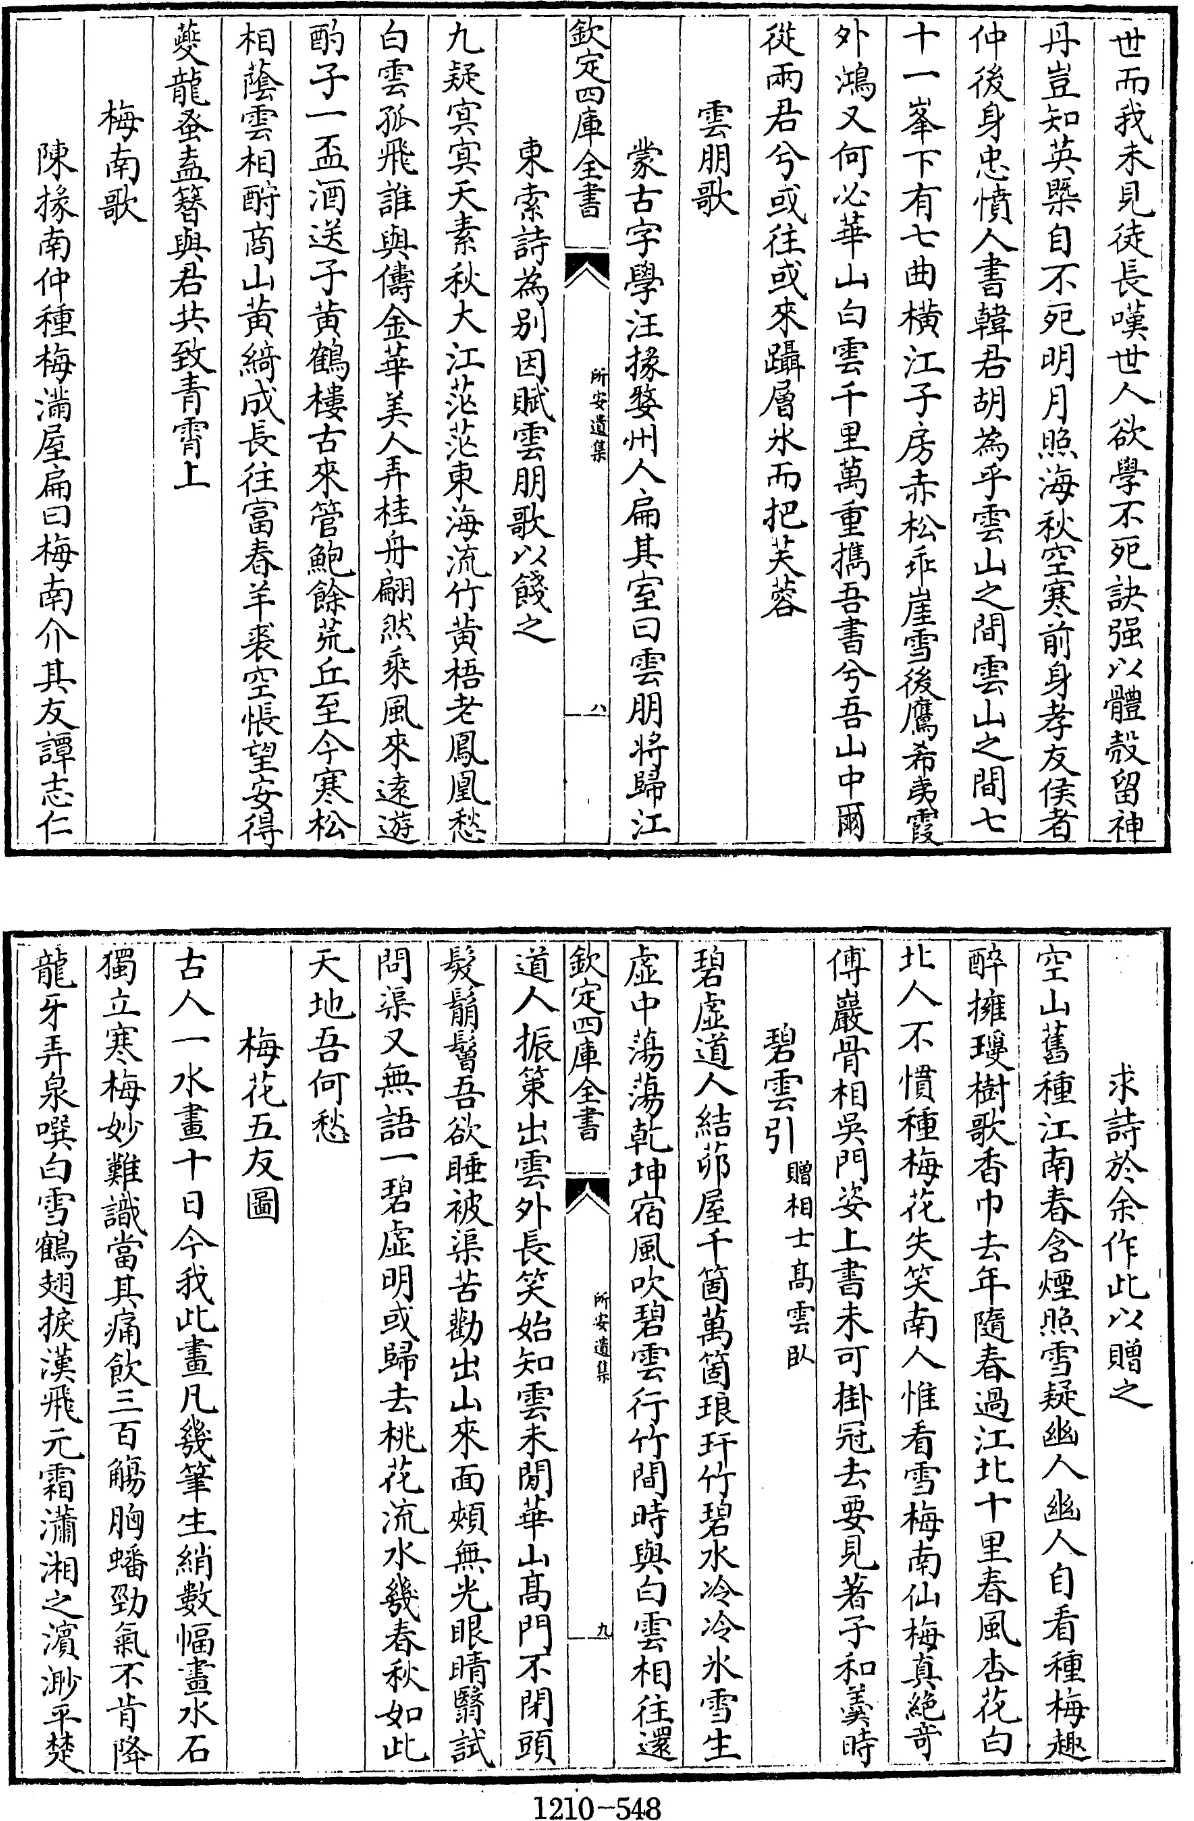 世而我未見徒長嘆世人欲學不死訣强以體殻留神
丹豈知英槩自不死明月照海秋空寒前身孝友侯者
仲後身忠憤人書韓君胡為乎雲山之間雲山之間七
十一峯下有七曲橫江子房赤松乖崖雪後鷹希夷霞
外鴻又何必華山白雲千里萬重攜吾書兮吾山中爾
從兩君兮或往或來躡層氷而把芙蓉
雲朋歌
蒙古字學汪掾婺州人扁其室曰雲朋将歸江
欽定四庫全書
所安遺集
八
東索詩為别因賦雲朋歌以餞之
九疑㝠㝠天素秋大江茫茫東海流竹黄梧老鳳凰愁
白雲孤飛誰與儔金華美人弄桂舟翩然乘風來遠遊
酌子一盃酒送子黄鶴樓古來管鮑餘荒丘至今寒松
相蔭雲相酧商山黄綺成長往富春羊裘空悵望安得
夔龍蚤盍簪與君共致青霄上
梅南歌
陳掾南仲種梅滿屋扁曰梅南介其友譚志仁
求詩於余作此以贈之
空山舊種江南春含煙照雪疑幽人幽人自看種梅趣
醉擁瓊樹歌香巾去年隨春過江北十里春風杏花白
北人不慣種梅花失笑南人惟看雪梅南仙梅真絶奇
傅巖骨相吳門姿上書未可掛冠去要見著子和羮時
碧雲引贈相士髙雲臥
碧虛道人結茆屋千箇萬箇琅玕竹碧水冷冷氷雪生
虛中蕩蕩乾坤宿風吹碧雲行竹間時與白雲相往還
欽定四庫全書
所安遺集
九
道人振策出雲外長笑始知雲未閒華山髙門不閉頭
髮鬅鬙吾欲睡被渠苦勸出山來面頰無光眼睛翳試
問渠又無語一碧虛明或歸去桃花流水幾春秋如此
天地吾何愁
梅花五友圖
古人一水畫十日今我此畫凡幾筆生綃數幅畫水石
獨立寒梅妙難識當其痛飲三百觴胸蟠勁氣不肯降
龍牙弄泉噀白雪鶴翅捩漢飛元霜瀟湘之濵渺平楚
1210-548